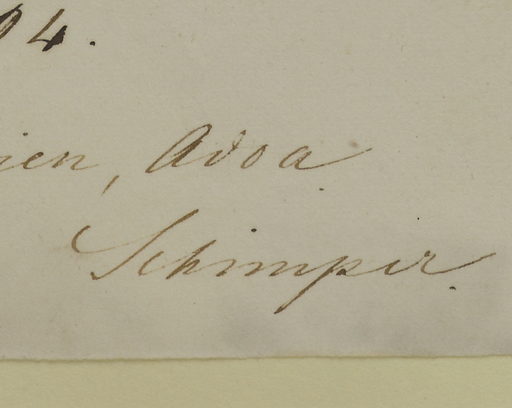 94.
ien, Adoa
Schimper.